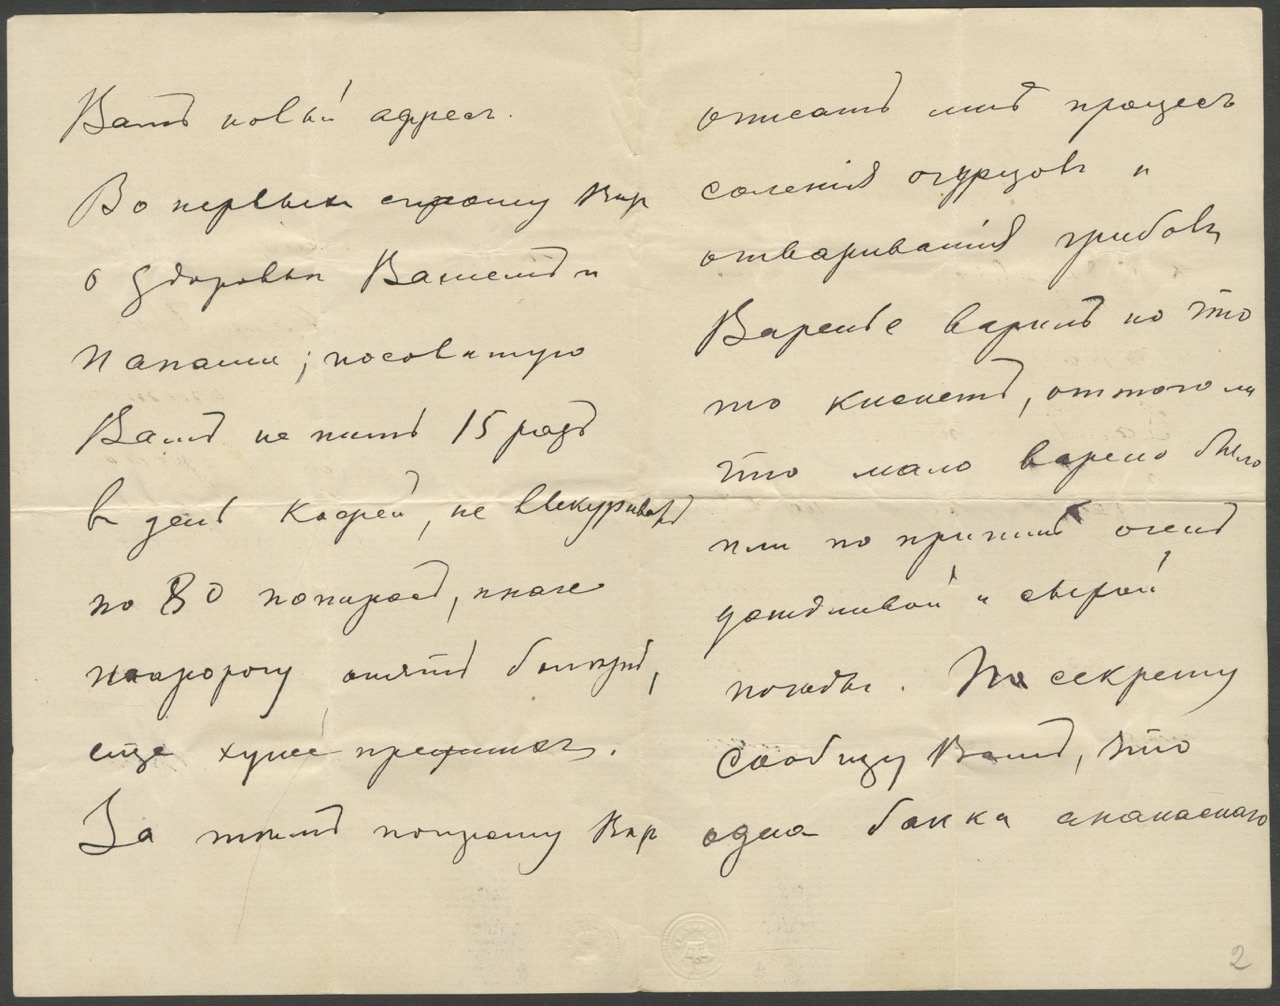 Вашъ новый адресъ.
Во первыхъ спрошу Вас
о здоровьи Вашемъ и
Папаши; посовѣтую
Вамъ не пить 15 разъ
въ день кофей, не выкуривать
по 80 папиросъ, иначе
опять
еще хуже прежняго.
За тѣмъ попрошу Вас
описать мнѣ процесъ
соленія огурцовъ и
отвариванія грибовъ
Варенье варилъ но что
то киснетъ, оттого ли
что мало варено было
или по причинѣ очень
дождливой и сырой
погоды. По секрету
сообщу Вамъ, что
одна банка ананаснаго
2